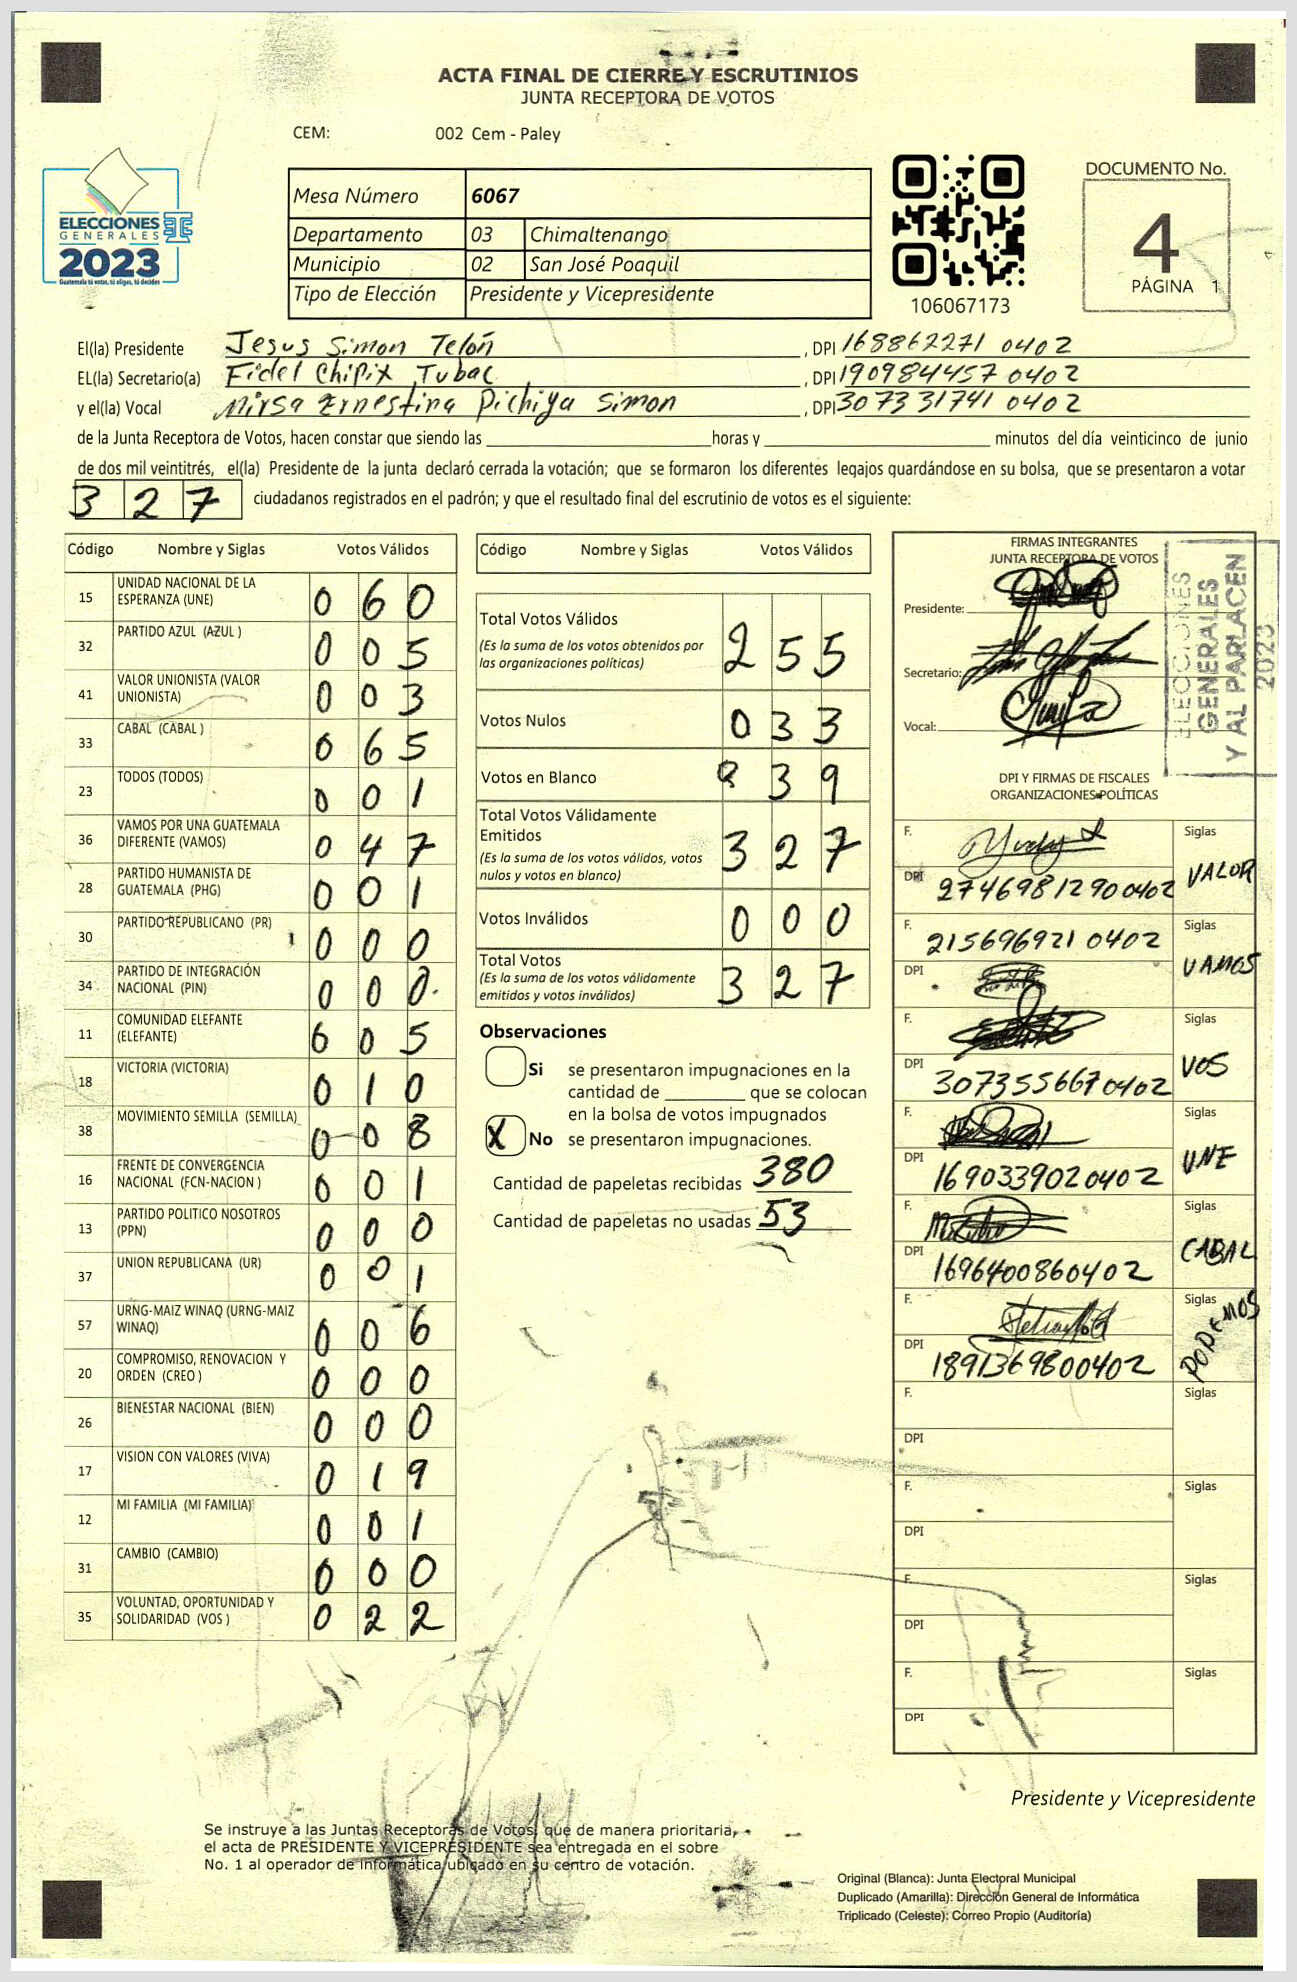 ACTA FINAL DE CIERRE Y ESCRUTINIOS
JUNTA RECEPTORA DE VOTOS
CEM: 002 Cem - Paley
ELECCIONES
GENERALES
2023
Guatemala tú votas, tú eliges, tú decides
Mesa Número 6067
Departamento 03 Chimaltenango
Municipio 02 San José Poaquil
Tipo de Elección Presidente y Vicepresidente
106067173
DOCUMENTO No.
4
PÁGINA 1
El(la) Presidente Jesus Simon Telón , DPI 168862271 0402
EL(la) Secretario(a) Fidel Chipix Tubac , DPI 190984457 0402
y el(la) Vocal Mirsa Ernestina Pichiya Simon , DPI 307331741 0402
de la Junta Receptora de Votos, hacen constar que siendo las ____ horas y ____ minutos del día veinticinco de junio
de dos mil veintitrés, el(la) Presidente de la junta declaró cerrada la votación; que se formaron los diferentes legajos quardándose en su bolsa, que se presentaron a votar
3 2 7 ciudadanos registrados en el padrón; y que el resultado final del escrutinio de votos es el siguiente:
Código Nombre y Siglas Votos Válidos
15 UNIDAD NACIONAL DE LA ESPERANZA (UNE) 0 6 0
32 PARTIDO AZUL (AZUL ) 0 0 5
41 VALOR UNIONISTA (VALOR UNIONISTA) 0 0 3
33 CABAL (CABAL ) 0 6 5
23 TODOS (TODOS) 0 0 1
36 VAMOS POR UNA GUATEMALA DIFERENTE (VAMOS) 0 4 7
28 PARTIDO HUMANISTA DE GUATEMALA (PHG) 0 0 1
30 PARTIDO REPUBLICANO (PR) 0 0 0
34 PARTIDO DE INTEGRACIÓN NACIONAL (PIN) 0 0 0
11 COMUNIDAD ELEFANTE (ELEFANTE) 0 0 5
18 VICTORIA (VICTORIA) 0 1 0
38 MOVIMIENTO SEMILLA (SEMILLA) 0 0 8
16 FRENTE DE CONVERGENCIA NACIONAL (FCN-NACION ) 0 0 1
13 PARTIDO POLITICO NOSOTROS (PPN) 0 0 0
37 UNION REPUBLICANA (UR) 0 0 1
57 URNG-MAIZ WINAQ (URNG-MAIZ WINAQ) 0 0 6
20 COMPROMISO, RENOVACION Y ORDEN (CREO ) 0 0 0
26 BIENESTAR NACIONAL (BIEN) 0 0 0
17 VISION CON VALORES (VIVA) 0 1 9
12 MI FAMILIA (MI FAMILIA) 0 0 1
31 CAMBIO (CAMBIO) 0 0 0
35 VOLUNTAD, OPORTUNIDAD Y SOLIDARIDAD (VOS ) 0 2 2
Código Nombre y Siglas Votos Válidos
Total Votos Válidos 2 5 5
(Es la suma de los votos obtenidos por
las organizaciones políticas)
Votos Nulos 0 3 3
Votos en Blanco 0 3 9
Total Votos Válidamente
Emitidos 3 2 7
(Es la suma de los votos válidos, votos
nulos y votos en blanco)
Votos Inválidos 0 0 0
Total Votos 3 2 7
(Es la suma de los votos válidamente
emitidos y votos inválidos)
Observaciones
Si se presentaron impugnaciones en la
cantidad de ____ que se colocan
en la bolsa de votos impugnados
X No se presentaron impugnaciones.
Cantidad de papeletas recibidas 380
Cantidad de papeletas no usadas 53
FIRMAS INTEGRANTES
JUNTA RECEPTORA DE VOTOS
Presidente:
Secretario:
Vocal:
ELECCIONES
GENERALES
Y AL PARLACEN
2023
DPI Y FIRMAS DE FISCALES
ORGANIZACIONES POLÍTICAS
F. Siglas VALOR
DPI 274698129 0402
F. 215696921 0402 Siglas VAMOS
DPI
F. Siglas VOS
DPI 307355667 0402
F. Siglas UNE
DPI 169033902 0402
F. Siglas CABAL
DPI 169640086 0402
F. Siglas PODEMOS
DPI 189136980 0402
F. Siglas
DPI
F. Siglas
DPI
F. Siglas
DPI
F. Siglas
DPI
Presidente y Vicepresidente
Se instruye a las Juntas Receptoras de Votos, que de manera prioritaria,
el acta de PRESIDENTE Y VICEPRESIDENTE sea entregada en el sobre
No. 1 al operador de informática ubicado en su centro de votación.
Original (Blanca): Junta Electoral Municipal
Duplicado (Amarilla): Dirección General de Informática
Triplicado (Celeste): Correo Propio (Auditoría)